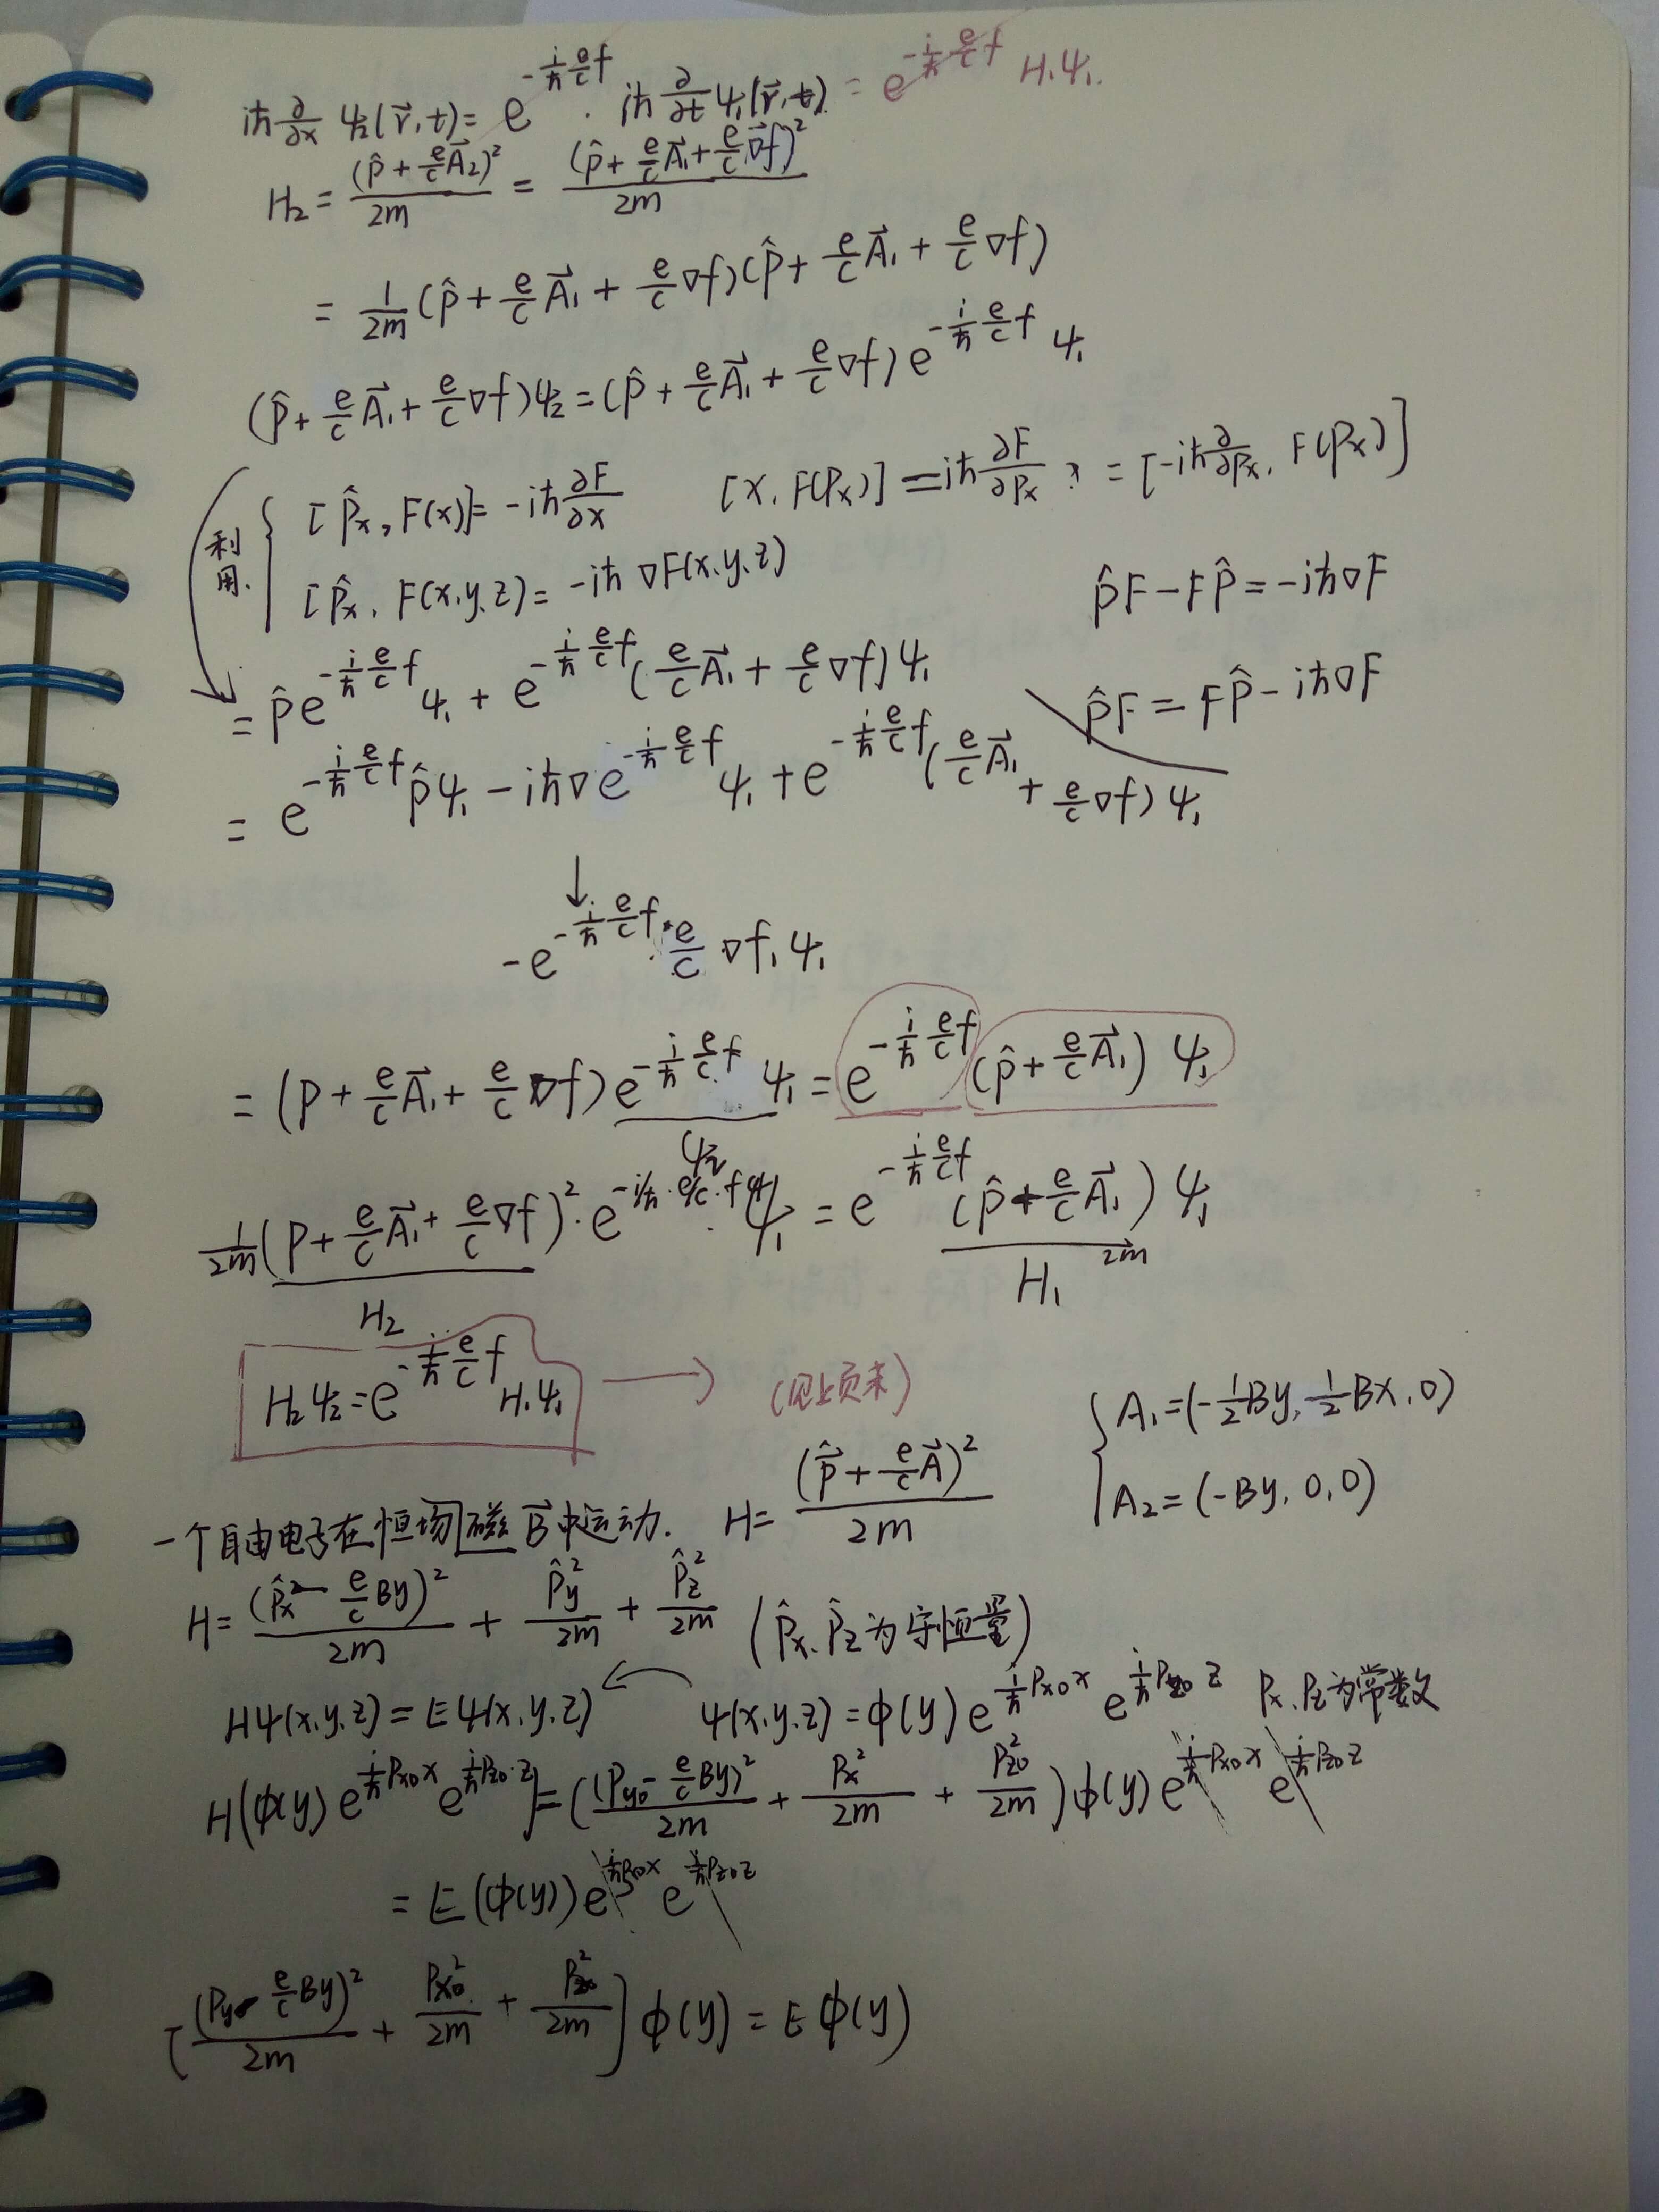 iħ ∂/∂x ψ₂(r⃗,t) = e^{-i/ħ e/c f} · iħ ∂/∂t ψ₁(r⃗,t) = e^{-i/ħ e/c f} H₁ψ₁.
H₂ = (p̂ + e/c A⃗₂)²/2m = (p̂ + e/c A⃗₁ + e/c ∇⃗f)²/2m
= 1/2m (p̂ + e/c A⃗₁ + e/c ∇f)(p̂ + e/c A⃗₁ + e/c ∇f)
(p̂ + e/c A⃗₁ + e/c ∇f)ψ₂ = (p̂ + e/c A⃗₁ + e/c ∇f) e^{-i/ħ e/c f} ψ₁
利用.
[p̂x, F(x)] = -iħ ∂F/∂x [x, F(Px)] = iħ ∂F/∂Px ? = [-iħ ∂/∂Px, F(Px)]
[p̂x, F(x,y,z) = -iħ ∇F(x,y,z) p̂F - Fp̂ = -iħ∇F
= p̂ e^{-i/ħ e/c f} ψ₁ + e^{-i/ħ e/c f} (e/c A⃗₁ + e/c ∇f) ψ₁ p̂F = Fp̂ - iħ∇F
= e^{-i/ħ e/c f} p̂ψ₁ - iħ∇e^{-i/ħ e/c f} ψ₁ + e^{-i/ħ e/c f} (e/c A⃗₁ + e/c ∇f) ψ₁
↓
-e^{-i/ħ e/c f} · e/c ∇f₁ ψ₁
= (p + e/c A⃗₁ + e/c ∇f) e^{-i/ħ e/c f} ψ₁ = e^{-i/ħ e/c f} (p̂ + e/c A⃗₁) ψ₁
ψ₂
1/2m (p + e/c A⃗₁ + e/c ∇f)² · e^{-i/ħ · e/c · f} · ψ₁ = e^{-i/ħ e/c f} (p̂ + e/c A⃗₁)/2m ψ₁
H₂ H₁
H₂ψ₂ = e^{-i/ħ e/c f} H₁ψ₁ → (见上页末)
{ A₁ = (-1/2 By, 1/2 Bx, 0)
A₂ = (-By, 0, 0)
一个自由电子在恒场磁B⃗中运动. H = (p̂⃗ + e/c A⃗)²/2m
H = (p̂x - e/c By)²/2m + p̂y²/2m + p̂z²/2m (p̂x、p̂z为守恒量)
Hψ(x,y,z) = Eψ(x,y,z) ← ψ(x,y,z) = φ(y) e^{i/ħ Px0 x} e^{i/ħ Pz0 z} Px、Pz为常数
H(φ(y) e^{i/ħ Px0 x} e^{i/ħ Pz0·z}) = ((Py0 - e/c By)²/2m + Px²/2m + Pz0²/2m) φ(y) e^{i/ħ Px0 x} e^{i/ħ Pz0 z}
= E(φ(y)) e^{i/ħ Px0 x} e^{i/ħ Pz0 z}
[(Py - e/c By)²/2m + Px0²/2m + Pz0²/2m] φ(y) = Eφ(y)